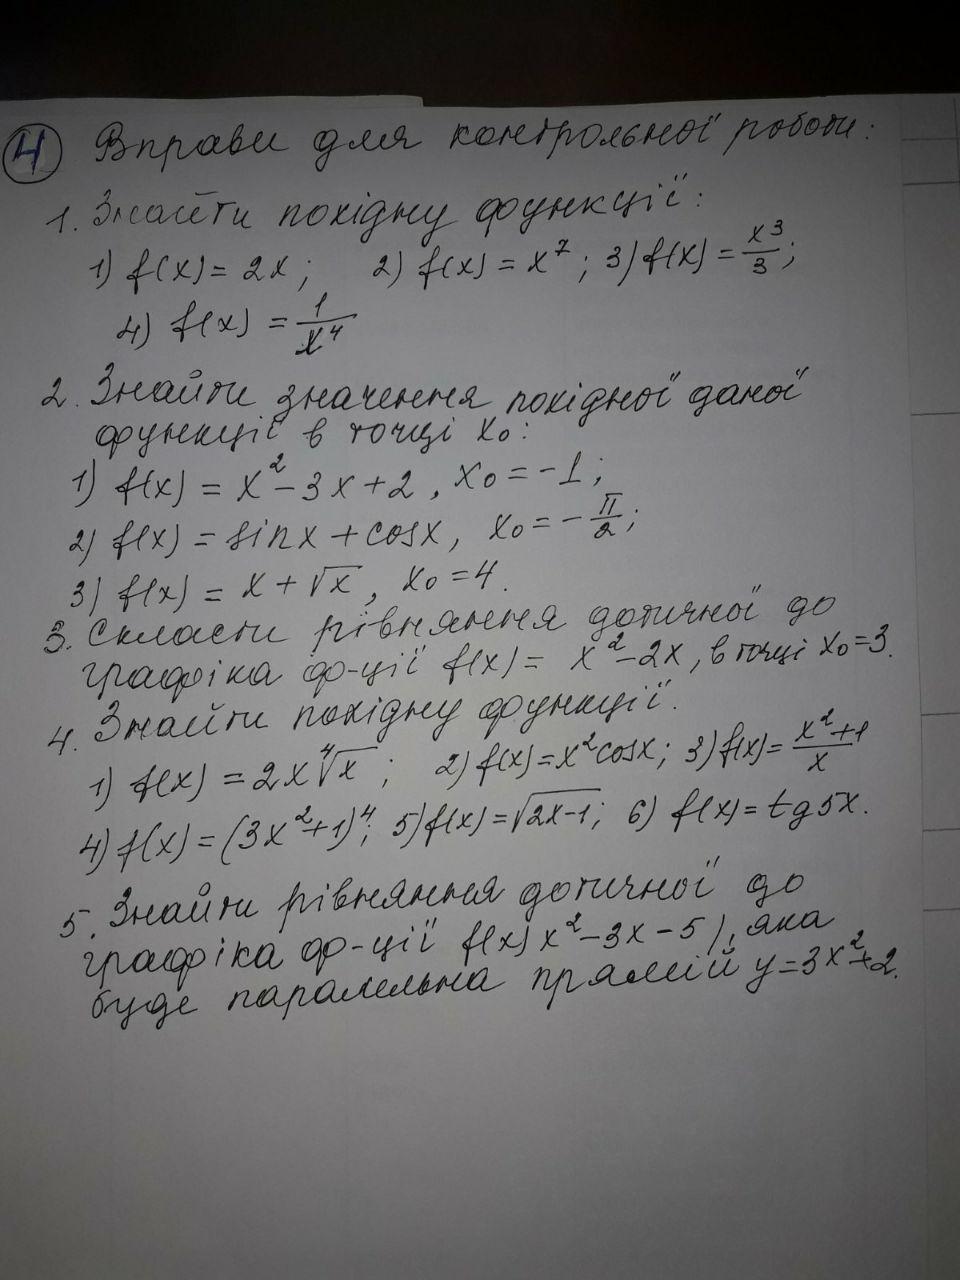 4 Вправи для контрольної роботи:
1. Знайти похідну функції:
1) f(x) = 2x; 2) f(x) = x⁷; 3) f(x) = x³/3;
4) f(x) = 1/x⁴
2. Знайти значення похідної даної
функції в точці x₀:
1) f(x) = x² - 3x + 2, x₀ = -1;
2) f(x) = sinx + cosx, x₀ = -π/2;
3) f(x) = x + √x, x₀ = 4.
3. Скласти рівняння дотичної до
графіка ф-ції f(x) = x² - 2x, в точці x₀ = 3.
4. Знайти похідну функції.
1) f(x) = 2x ⁴√x; 2) f(x) = x²cosx; 3) f(x) = x²+1/x
4) f(x) = (3x²+1)⁴; 5) f(x) = √2x-1; 6) f(x) = tg5x.
5. Знайти рівняння дотичної до
графіка ф-ції f(x) x² - 3x - 5), яка
буде паралельна прямій y = 3x² + 2.